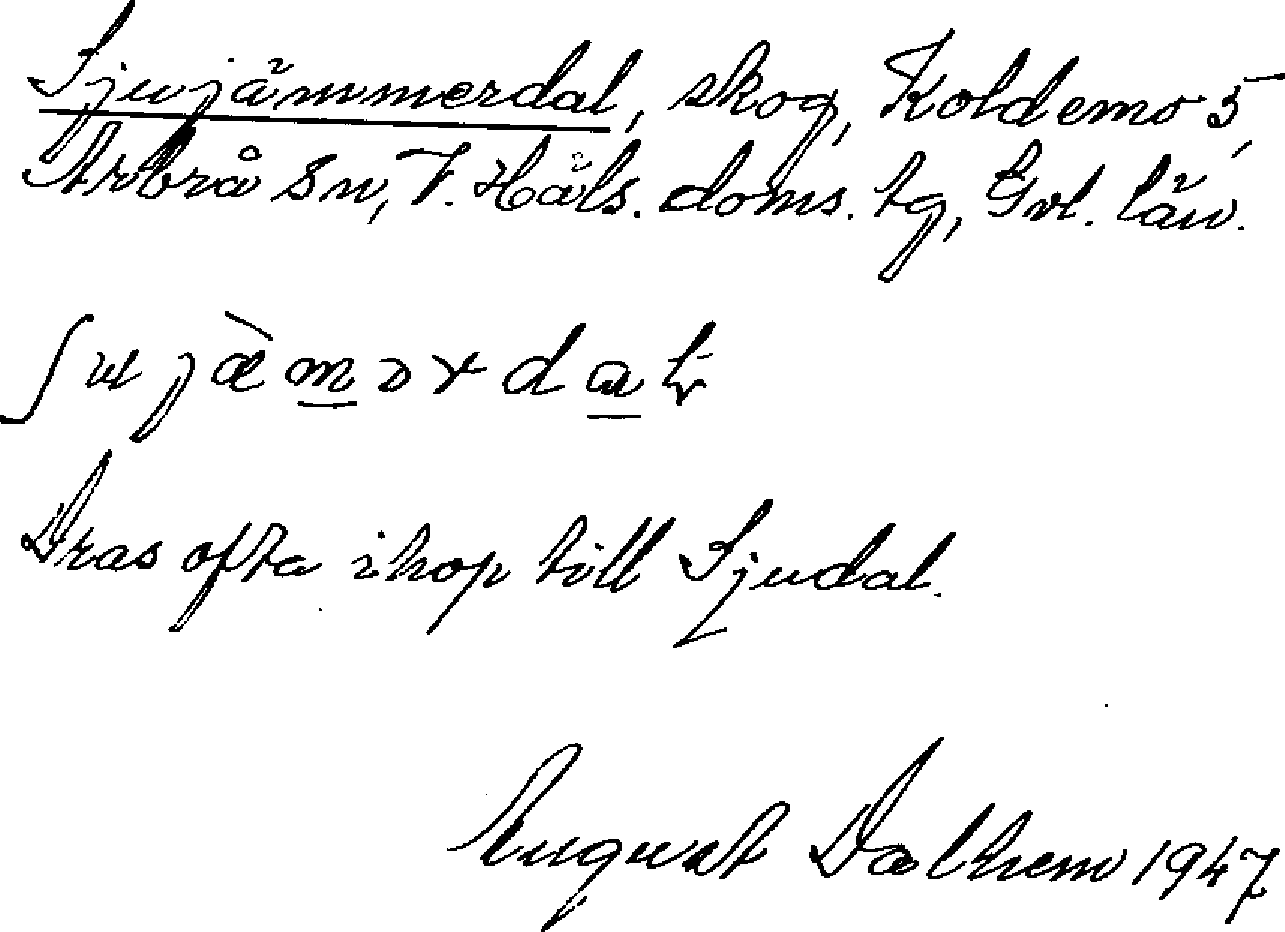 Sjujämmerdal, skog, Koldemo 5,
Arbrå sn, V. Häls. doms. tg, Gvl. län.
ʃujæ̀m̲ərda̲ɽ
Dras ofta ihop till Sjudal.
August Dalhem 1947